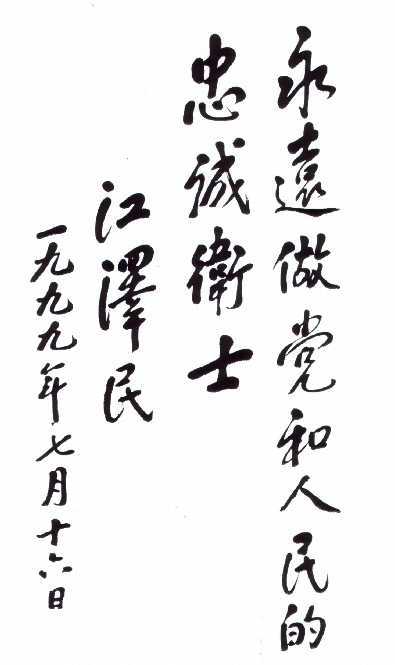 永遠做党和人民的
忠诚衛士
江澤民
一九九九年七月十六日